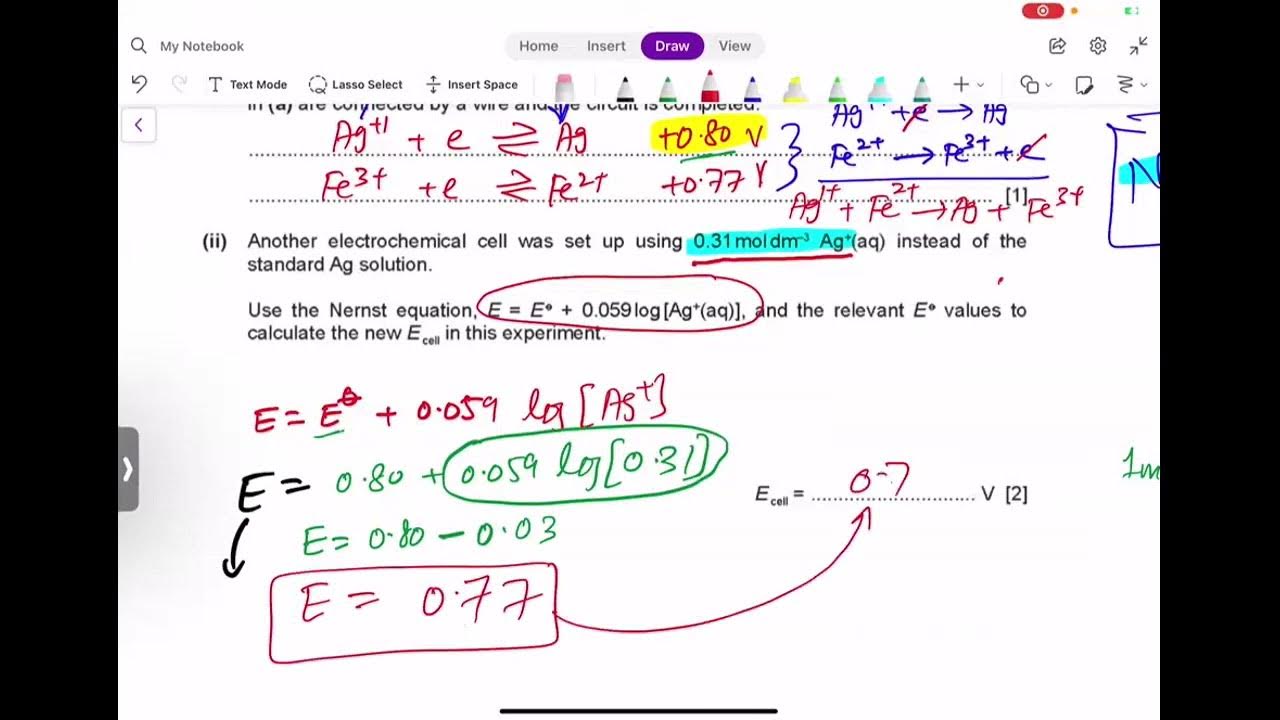 My Notebook
Home Insert Draw View
Text Mode Lasso Select Insert Space
in (a) are connected by a wire and the circuit is completed.
Ag+1 + e ⇌ Ag +0.80 V
Fe3+ + e ⇌ Fe2+ +0.77 V
Ag1+ + e → Ag
Fe2+ → Fe3+ + e
Ag1+ + Fe2+ → Ag + Fe3+
[1]
(ii) Another electrochemical cell was set up using 0.31 mol dm–3 Ag+(aq) instead of the
standard Ag solution.
Use the Nernst equation, E = E⦵ + 0.059 log [Ag+(aq)], and the relevant E⦵ values to
calculate the new Ecell in this experiment.
E = E⦵ + 0.059 log [Ag+]
E = 0.80 + 0.059 log [0.31]
Ecell = 0.7 V [2]
E = 0.80 – 0.03
E = 0.77